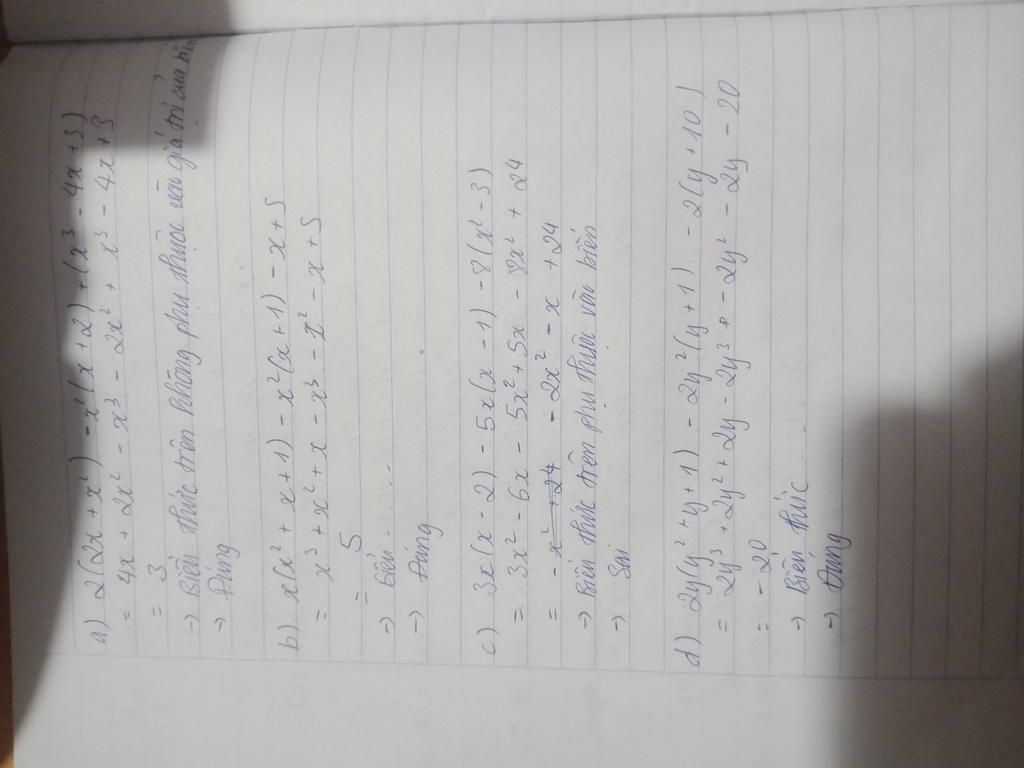 a) 2(2x + x²) - x²(x + 2) + (x³ - 4x + 3)
= 4x + 2x² - x³ - 2x² + x³ - 4x + 3
= 3
→ Biểu thức trên không phụ thuộc vào giá trị của biến
→ Đúng
b) x(x² + x + 1) - x²(x + 1) - x + 5
= x³ + x² + x - x³ - x² - x + 5
= 5
→ Biểu.....
→ Đúng
c) 3x(x - 2) - 5x(x - 1) - 8(x² - 3)
= 3x² - 6x - 5x² + 5x - 8x² + 24
= - x² + 24 - 2x² - x + 24
→ Biểu thức trên phụ thuộc vào biến
→ Sai
d) 2y(y² + y + 1) - 2y²(y + 1) - 2(y + 10)
= 2y³ + 2y² + 2y - 2y³ - 2y² - 2y - 20
= - 20
→ Biểu thức...
→ Đúng